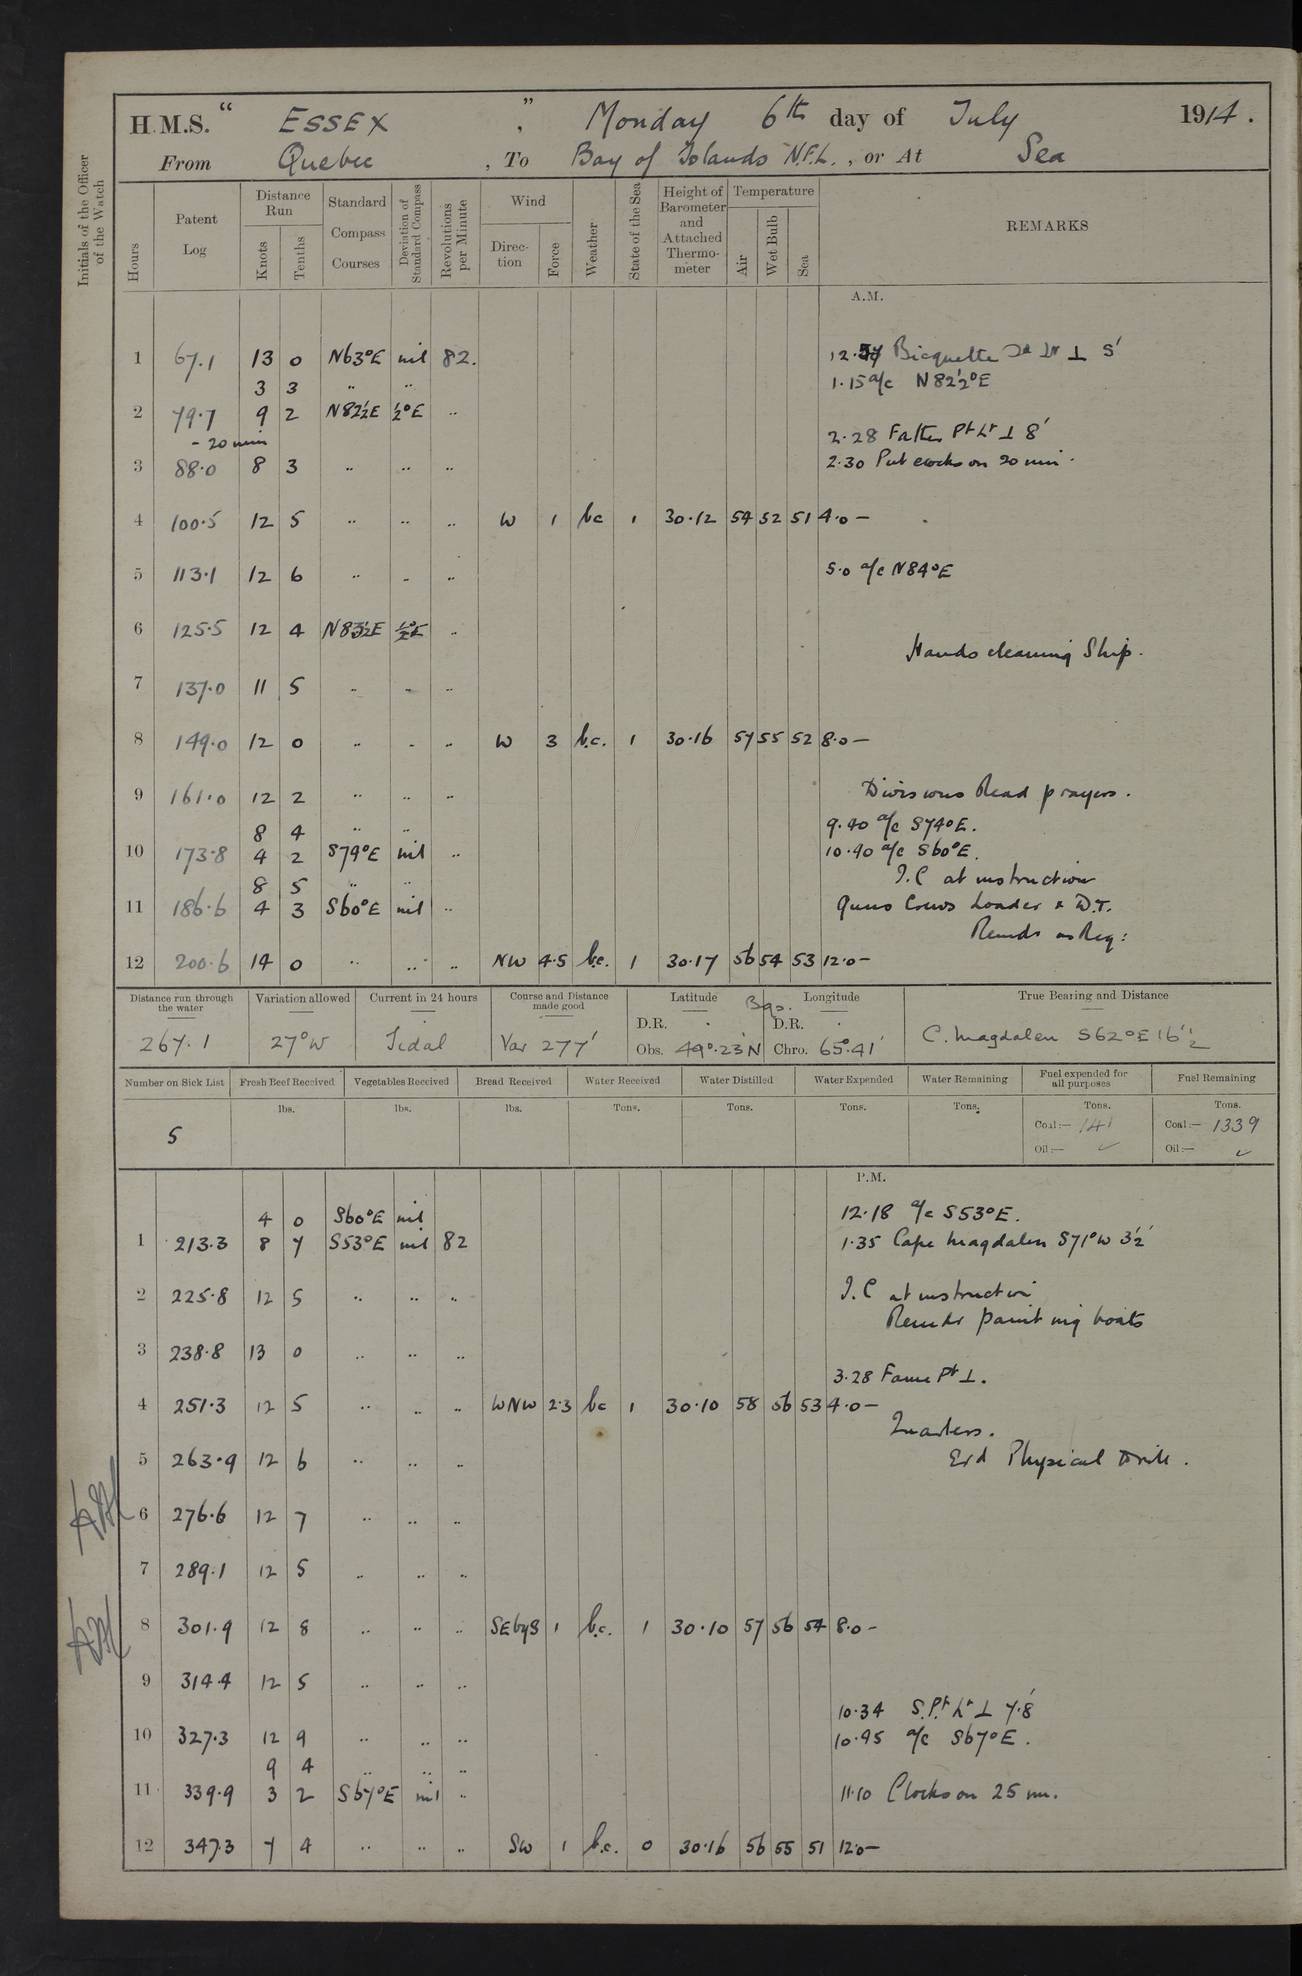 H.M.S. " ESSEX ", Monday 6th day of July 1914.
From Quebec, To Bay of Islands N.F.L., or At Sea
Initials of the Officer of the Watch
Hours Patent Log Distance Run Knots Tenths Standard Compass Courses Deviation of Standard Compass Revolutions per Minute Wind Direction Force Weather State of the Sea Height of Barometer and Attached Thermometer Temperature Air Wet Bulb Sea REMARKS
A.M.
1 67.1 13 0 N63°E nil 82. 12.54 Bicquette
3 3 " " 1.15 a/c N82½°E
2 79.7 9 2 N82½E ½°E "
- 20 min 2.28 Father Pt Lt ⊥ 8'
3 88.0 8 3 " " " 2.30 Put clocks on 20 min.
4 100.5 12 5 " " " W 1 bc 1 30.12 54 52 51 4.0 —
5 113.1 12 6 " " " 5.0 a/c N84°E
6 125.5 12 4 N83½E ½°E "
Hands cleaning Ship.
7 137.0 11 5 " " "
8 149.0 12 0 " " " W 3 b.c. 1 30.16 57 55 52 8.0 —
9 161.0 12 2 " " " Divisions Read prayers.
8 4 " " 9.40 a/c S74°E.
10 173.8 4 2 S79°E nil " 10.40 a/c S60°E.
8 5 " " I.C at instruction
11 186.6 4 3 S60°E nil " Guns Crews Loader & D.T.
Remdr as Req:
12 200.6 14 0 " " " NW 4.5 b.c. 1 30.17 56 54 53 12.0 —
Distance run through the water Variation allowed Current in 24 hours Course and Distance made good Latitude Bgs. Longitude True Bearing and Distance
D.R. D.R.
267.1 27°W Tidal Var 277' Obs. 49°.23'N Chro. 65°.41' C. Magdalen S62°E 16½'
Number on Sick List Fresh Beef Received Vegetables Received Bread Received Water Received Water Distilled Water Expended Water Remaining Fuel expended for all purposes Fuel Remaining
lbs. lbs. lbs. Tons. Tons. Tons. Tons. Tons. Tons.
5 Coal:— 141 Coal:— 1339
Oil:— ✓ Oil:— ✓
P.M.
4 0 S60°E nil 12.18 a/c S53°E.
1 213.3 8 7 S53°E nil 82 1.35 Cape Magdalen S71°W 3½'
2 225.8 12 5 " " " I.C at instruction
Remdr painting boats
3 238.8 13 0 " " "
3.28 Fame Pt ⊥.
4 251.3 12 5 " " " WNW 2.3 bc 1 30.10 58 56 53 4.0 —
Quarters.
5 263.9 12 6 " " " Physical Drill.
6 276.6 12 7 " " "
7 289.1 12 5 " " "
8 301.9 12 8 " " " SEbyS 1 b.c. 1 30.10 57 56 54 8.0 —
9 314.4 12 5 " " "
10.34 S.Pt. Lt ⊥ 7.8'
10 327.3 12 9 " " " 10.45 a/c S67°E.
9 4 " " "
11 339.9 3 2 S67°E nil " 11.10 Clocks on 25 mn.
12 347.3 7 4 " " " SW 1 b.c. 0 30.16 56 55 51 12.0 —